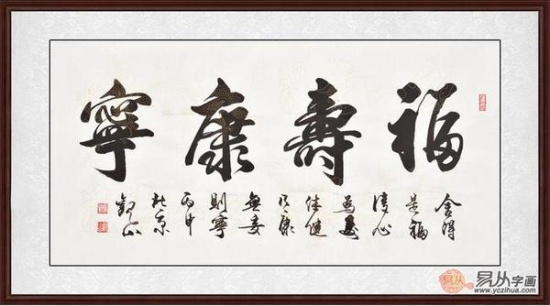 福壽康寧
舍得
是福
清心
為壽
体健
乃康
無妄
則寧
丙申
於京
易从字画
www.yczihua.com